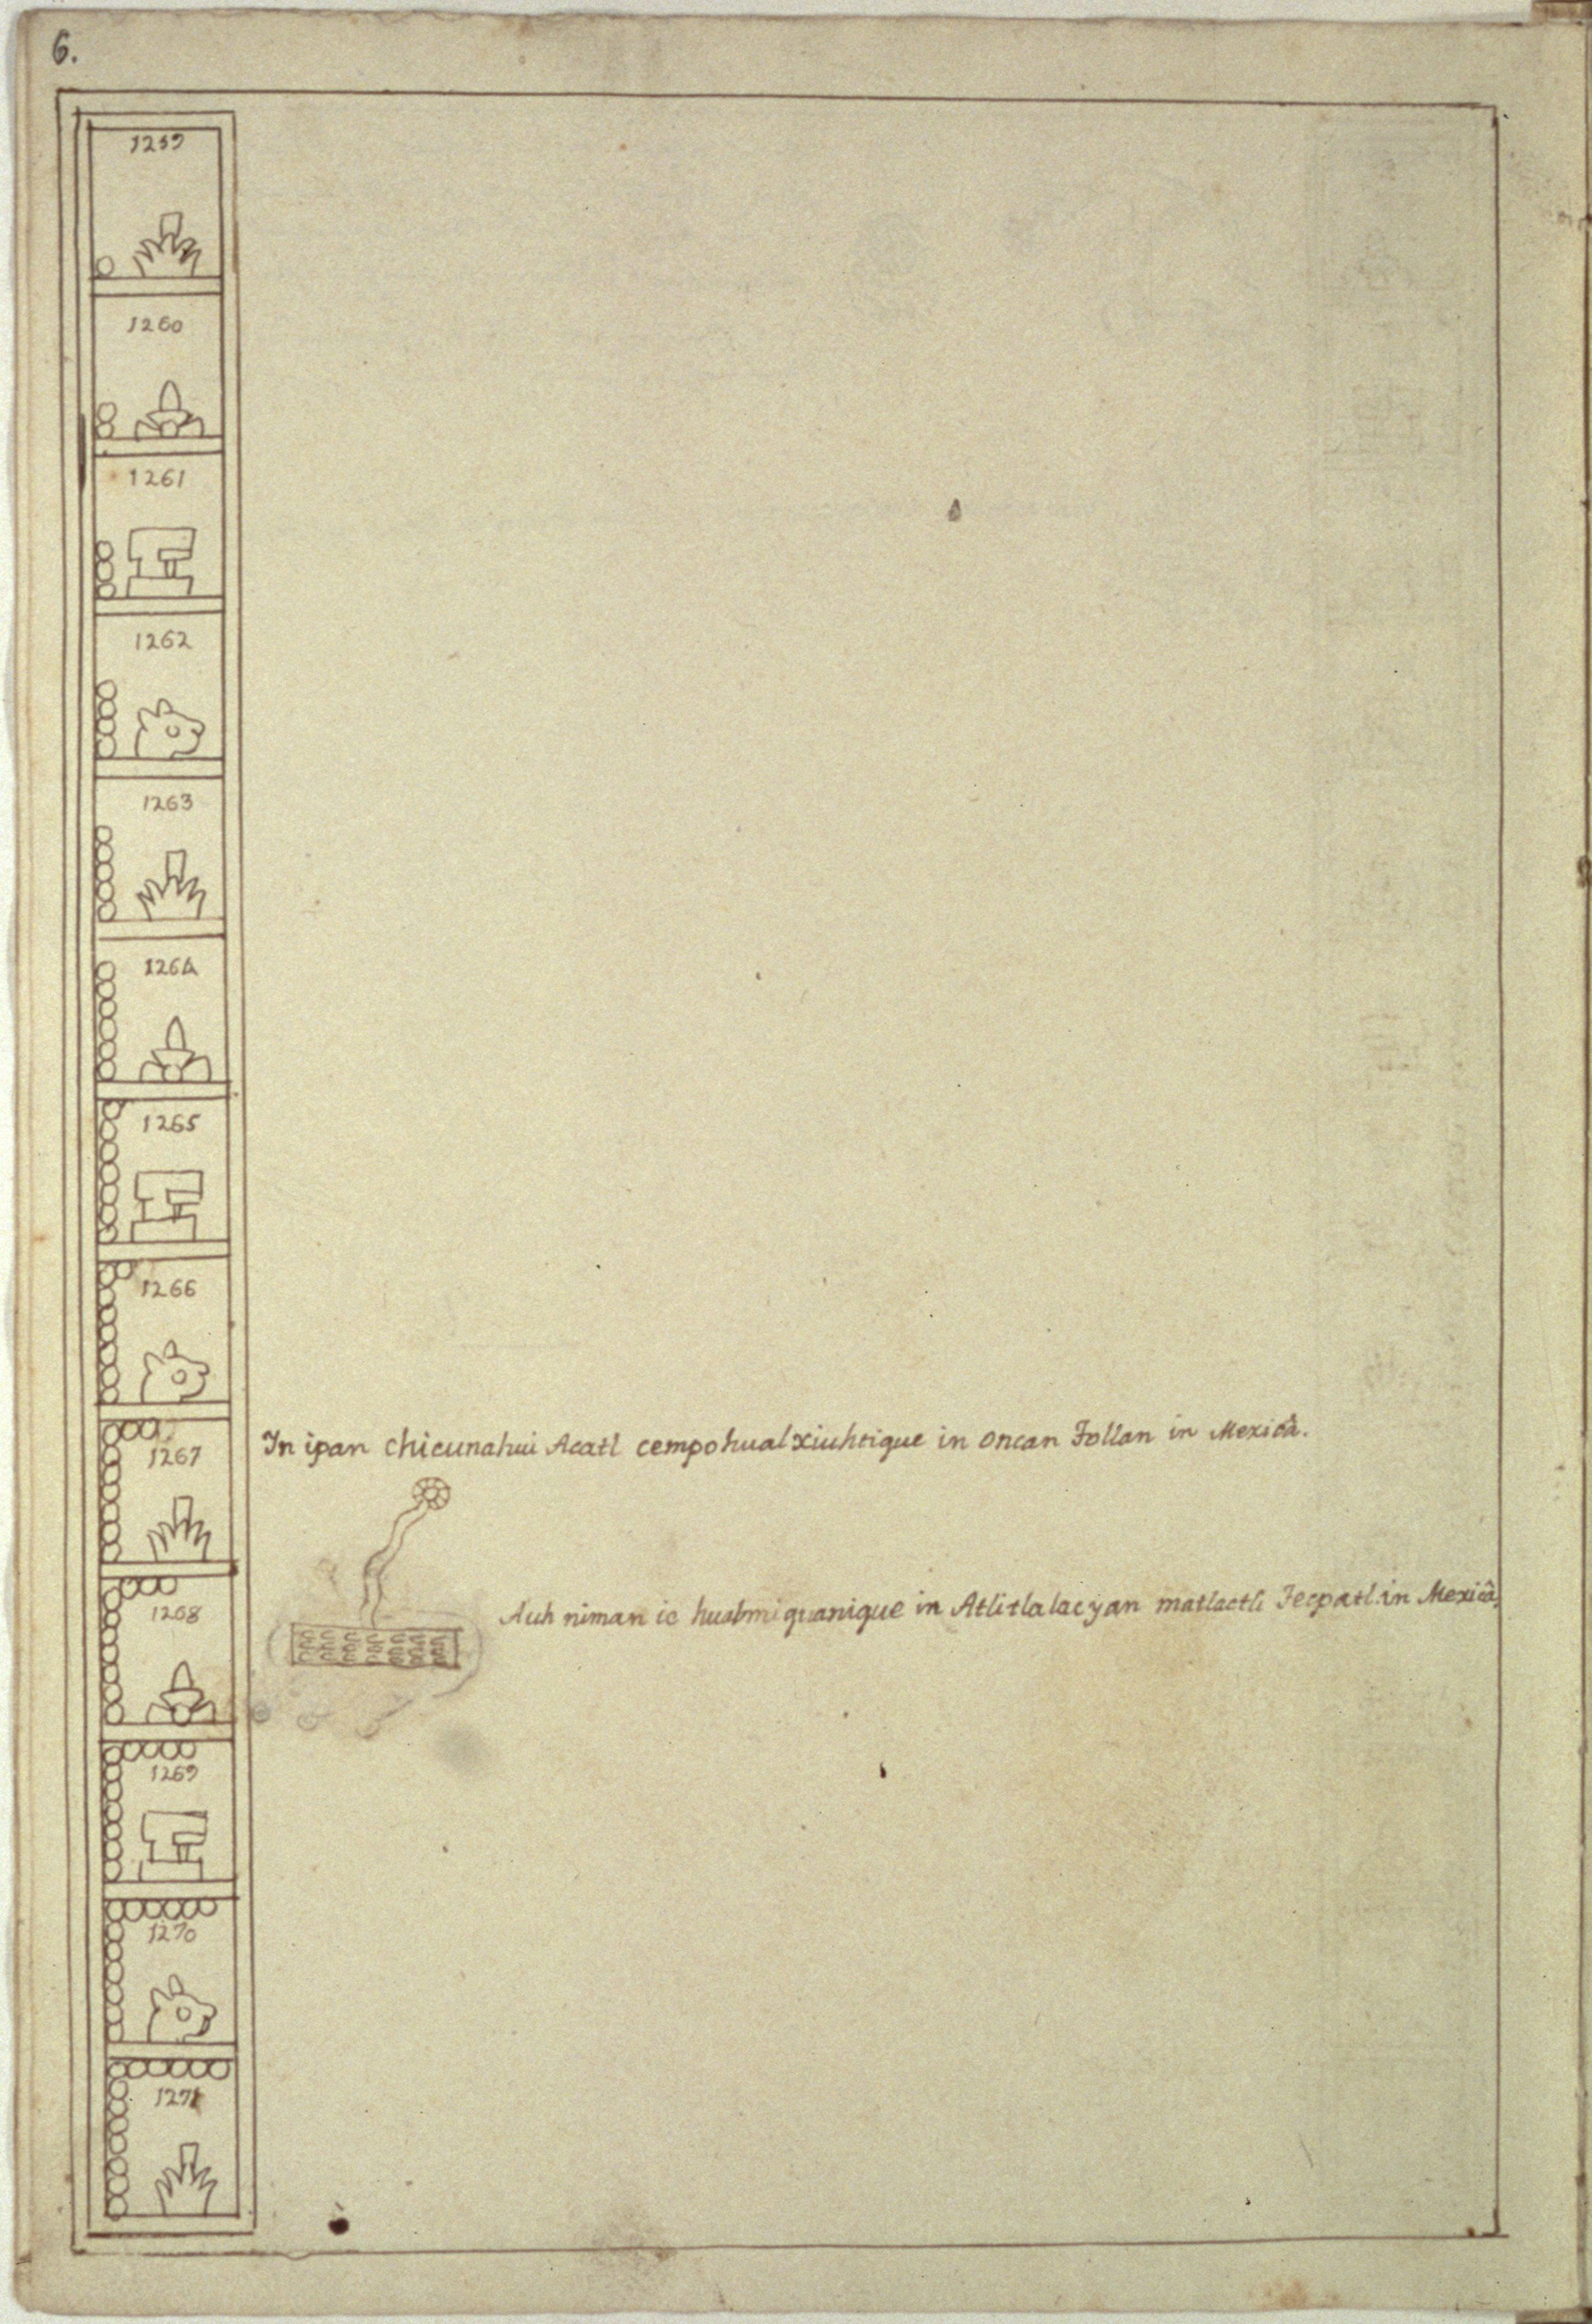 6.
1259
1260
1261
1262
1263
1264
1265
1266
1267
In ipan chicunahui Acatl cempohualxiuhtique in oncan Tollan in Mexicâ.
1268
Auh niman ic hualmiquanique in Atlitlalacyan matlactli Tecpatl in Mexicâ.
1269
1270
1271